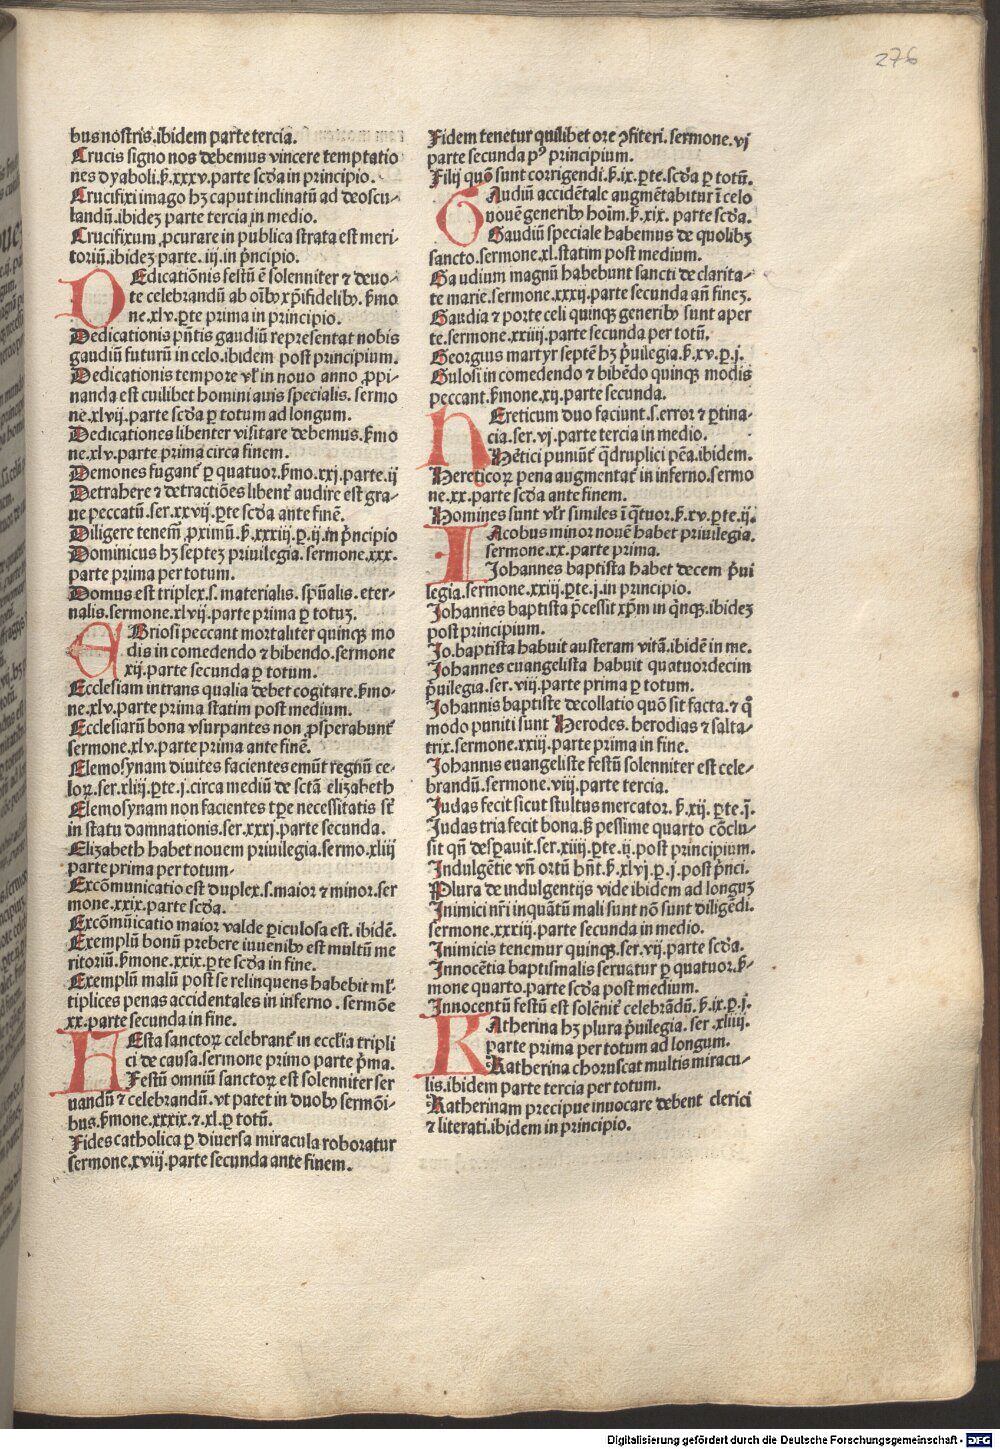 276
bus nostris.ibidem parte tercia.
Crucis signo nos debemus vincere temptatio
nes dyaboli.ẜ.xxxv.parte scd̄a in principio.
Crucifixi imago hꝫ caput inclinatū ad deoscu-
landū.ibidez parte tercia in medio.
Crucifixum ꝓcurare in publica strata est meri-
toriū.ibidez parte.iij.in p̄ncipio.
DEdicatiōnis festū ē solenniter ⁊ deuo-
te celebrandū ab oīb⁹ xp̄ifidelib⁹.ẜmo
ne.xlv.ꝑte prima in principio.
Dedicationis pn̄tis gaudiū representat nobis
gaudiū futurū in celo.ibidem post principium.
Dedicationis tempore vl̓ in nouo anno ꝓpi-
nanda est cuilibet homini auis specialis.sermo
ne.xlvij.parte scd̄a ꝑ totum ad longum.
Dedicationes libenter visitare debemus.ẜmo
ne.xlv.parte prima circa finem.
Demones fugant᷑ ꝑ quatuor.ẜmo.xxj.parte.ij
Detrahere ⁊ detractiōes libent᷑ audire est gra-
ne peccatū.ser.xxvij.ꝑte scd̄a ante finē.
Diligere tenem᷑ ꝓximū.ẜ.xxxiij.ꝑ.ij.in p̄ncipio
Dominicus hꝫ septez priuilegia.sermone.xxx.
parte prima per totum.
Domus est triplex.s.materialis.spūalis.eter-
nalis.sermone.xlvij.parte prima ꝑ totuꝫ.
EBriosi peccant mortaliter quinqꝫ mo
dis in comedendo ⁊ bibendo.sermone
xij.parte secunda ꝑ totum.
Ecclesiam intrans qualia debet cogitare.ẜmo-
ne.xlv.parte prima statim post medium.
Ecclesiarū bona vsurpantes non ꝓsperabunt᷑
sermone.xlv.parte prima ante finē.
Elemosynam diuites facientes emūt regnū ce-
loꝝ.ser.xliij.ꝑte.j.circa mediū de sctā elizabeth
Elemosynam non facientes tꝑe necessitatis st᷑
in statu damnationis.ser.xxxj.parte secunda.
Elizabeth habet nouem priuilegia.sermo.xliij
parte prima per totum-
Excōmunicatio est duplex.s.maior ⁊ minor.ser
mone.xxix.parte scd̄a.
Excōmūicatio maior valde ꝑiculosa est.ibidē.
Exemplū bonū prebere iuuenib⁹ est multū me
ritoriū.ẜmone.xxix.ꝑte scd̄a in fine.
Exemplū malū post se relinquens habebit ml̓-
tiplices penas accidentales in inferno.sermōe
xx.parte secunda in fine.
FEsta sanctoꝝ celebrant᷑ in eccl̓ia tripli
ci de causa.sermone primo parte p̄ma.
Festū omniū sanctoꝝ est solenniter ser
uandū ⁊ celebrandū.vt patet in duob⁹ sermōi-
bus.ẜmone.xxxix.⁊.xl.ꝑ totū.
Fides catholica ꝑ diuersa miracula roboratur
sermone.xviij.parte secunda ante finem.
Fidem tenetur quilibet ore ꝯfiteri.sermone.vj
parte secunda p⁹ principium.
Filij quō sunt corrigendi.ẜ.ix.ꝑte.scd̄a ꝑ totū.
GAudiū accidētale augmētabitur ī celo
nouē generib⁹ hoīm.ẜ.xix.parte scd̄a.
Gaudiū speciale habemus de quolibꝫ
sancto.sermone.xl.statim post medium.
Gaudium magnū habebunt sancti de clarita-
te marie.sermone.xxxij.parte secunda añ finez.
Gaudia ⁊ porte celi quinqꝫ generib⁹ sunt aper
te.sermone.xxiiij.parte secunda per totū.
Georgius martyr septē hꝫ p̄uilegia.ẜ.xv.ꝑ.j.
Gulosi in comedendo ⁊ bibēdo quinqꝫ modis
peccant.ẜmone.xij.parte secunda.
HEreticum duo faciunt.s.error ⁊ ꝑtina-
cia.ser.vj.parte tercia in medio.
Hētici puniūt᷑ q̄druplici pēa.ibidem.
Hereticoꝝ pena augmentat᷑ in inferno.sermo
ne.xx.parte scd̄a ante finem.
Homines sunt vl̓r similes ī q̄tuor.ẜ.xv.ꝑte.ij.
IAcobus minor nouē habet priuilegia.
sermone.xx.parte prima.
Johannes baptista habet decem p̄ui
legia.sermone.xxiij.ꝑte.j.in principio.
Johannes baptista p̄cessit xp̄m in qn̄qꝫ.ibidez
post principium.
Jo.baptista habuit austeram vitā.ibidē in me.
Johannes euangelista habuit quatuordecim
p̄uilegia.ser.viij.parte prima ꝑ totum.
Johannis baptiste decollatio quō sit facta.⁊ q̊
modo puniti sunt Herodes.herodias ⁊ salta-
trix.sermone.xxiij.parte prima in fine.
Johannis euangeliste festū solenniter est cele-
brandū.sermone.viij.parte tercia.
Judas fecit sicut stultus mercator.ẜ.xij.ꝑte.j.
Judas tria fecit bona.ẜ pessime quarto cōclu-
sit qn̄ desꝑauit.ser.xiiij.ꝑte.ij.post principium.
Indulgētie vn̄ ortū hn̄t.ẜ.xlvj.ꝑ.j.post p̄nci.
Plura de indulgentijs vide ibidem ad longuꝫ
Inimici nr̄i inquātū mali sunt nō sunt diligēdi.
sermone.xxxiij.parte secunda in medio.
Inimicis tenemur quinqꝫ.ser.vij.parte scd̄a.
Innocētia baptismalis seruatur ꝑ quatuor.ẜ-
mone quarto.parte scd̄a post medium.
Innocentū festū est solēnit᷑ celebrādū.ẜ.ix.ꝑ.j.
KAtherina hꝫ plura p̄uilegia.ser.xliiij.
parte prima per totum ad longum.
Katherina choruscat multis miracu-
lis.ibidem parte tercia per totum.
Katherinam precipue inuocare debent clerici
⁊ literati.ibidem in principio.
Digitalisierung gefördert durch die Deutsche Forschungsgemeinschaft - DFG